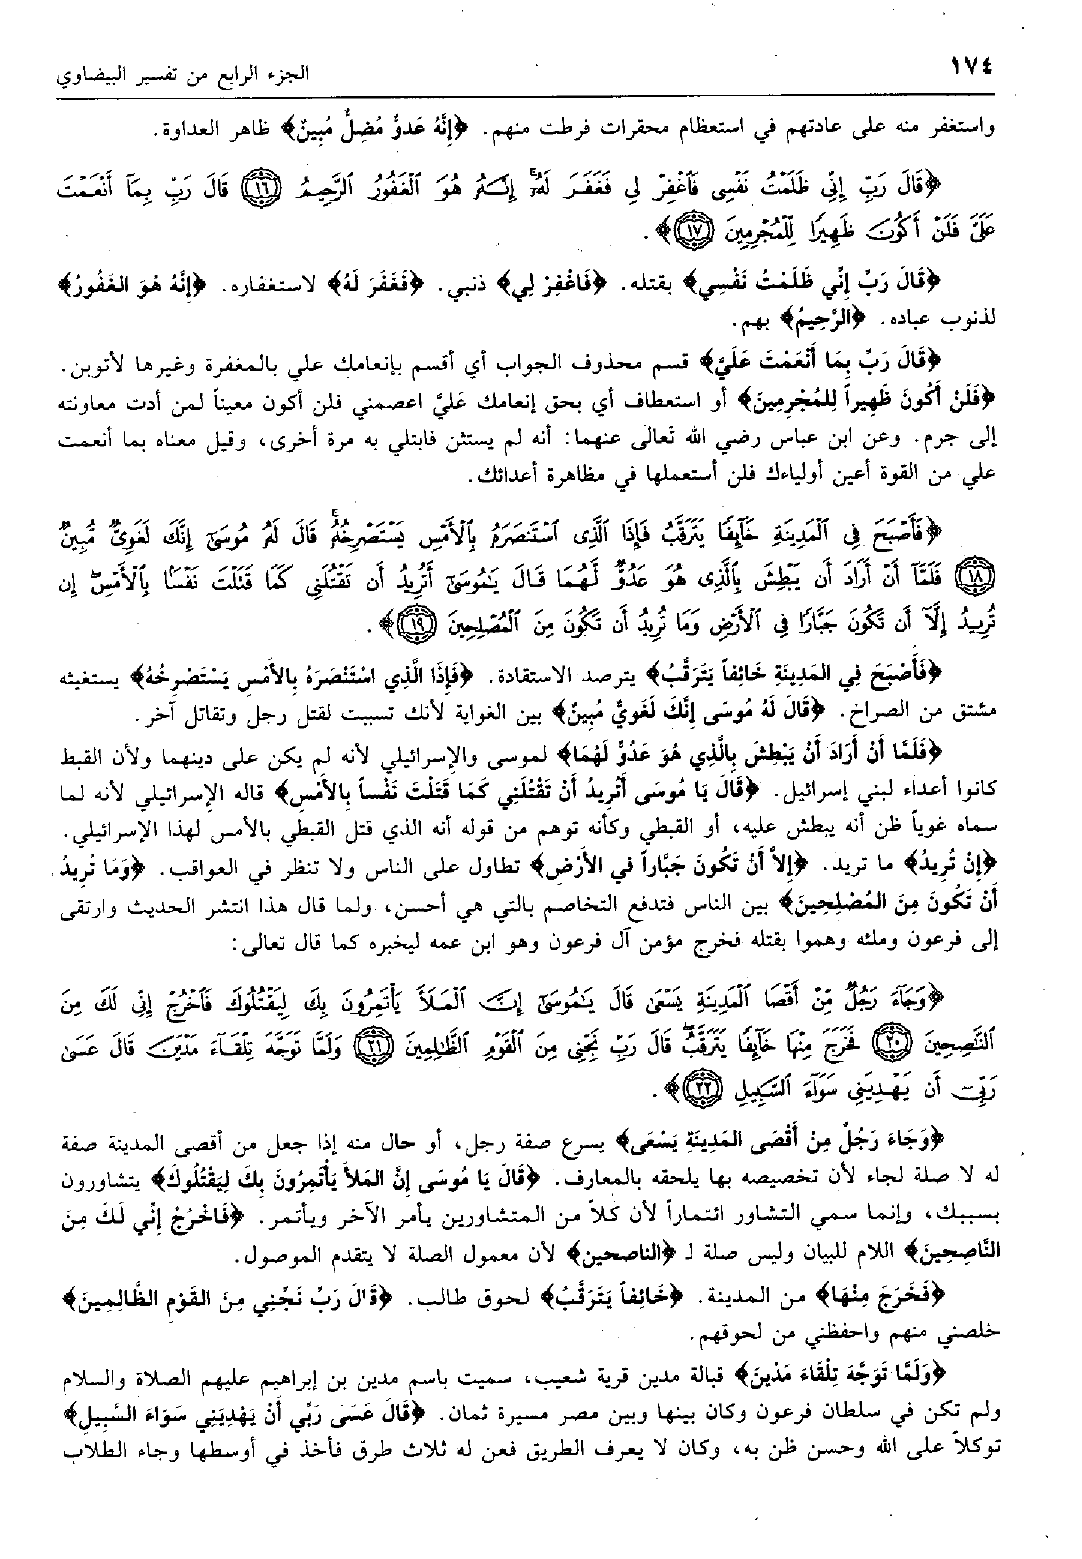 ١٧٤
الجزء الرابع من تفسير البيضاوي
واستغفر منه على عادتهم في استعظام محقرات فرطت منهم. ﴿إِنَّهُ عَدوٌّ مُضِلٌّ مُبِينٌ﴾ ظاهر العداوة.
﴿قَالَ رَبِّ إِنِّي ظَلَمْتُ نَفْسِي فَاغْفِرْ لِي فَغَفَرَ لَهُ إِنَّهُ هُوَ الْغَفُورُ الرَّحِيمُ (١٦) قَالَ رَبِّ بِمَا أَنْعَمْتَ
عَلَيَّ فَلَنْ أَكُونَ ظَهِيرًا لِلْمُجْرِمِينَ (١٧)﴾.
﴿قَالَ رَبِّ إِنِّي ظَلَمْتُ نَفْسِي﴾ بقتله. ﴿فَاغْفِرْ لِي﴾ ذنبي. ﴿فَغَفَرَ لَهُ﴾ لاستغفاره. ﴿إِنَّهُ هُوَ الغَفُورُ﴾
لذنوب عباده. ﴿الرَّحِيمُ﴾ بهم.
﴿قَالَ رَبِّ بِمَا أَنْعَمْتَ عَلَيَّ﴾ قسم محذوف الجواب أي أقسم بإنعامك علي بالمغفرة وغيرها لأتوبن.
﴿فَلَنْ أَكُونَ ظَهِيراً لِلمُجْرِمِينَ﴾ أو استعطاف أي بحق إنعامك عَليَّ اعصمني فلن أكون معيناً لمن أدت معاونته
إلى جرم. وعن ابن عباس رضي الله تَعالَى عنهما: أنه لم يستثن فابتلي به مرة أخرى، وقيل معناه بما أنعمت
علي من القوة أعين أولياءك فلن أستعملها في مظاهرة أعدائك.
﴿فَأَصْبَحَ فِي الْمَدِينَةِ خَائِفًا يَتَرَقَّبُ فَإِذَا الَّذِي اسْتَنْصَرَهُ بِالْأَمْسِ يَسْتَصْرِخُهُ قَالَ لَهُ مُوسَى إِنَّكَ لَغَوِيٌّ مُبِينٌ
(١٨) فَلَمَّا أَنْ أَرَادَ أَنْ يَبْطِشَ بِالَّذِي هُوَ عَدُوٌّ لَهُمَا قَالَ يَا مُوسَى أَتُرِيدُ أَنْ تَقْتُلَنِي كَمَا قَتَلْتَ نَفْسًا بِالْأَمْسِ إِنْ
تُرِيدُ إِلَّا أَنْ تَكُونَ جَبَّارًا فِي الْأَرْضِ وَمَا تُرِيدُ أَنْ تَكُونَ مِنَ الْمُصْلِحِينَ (١٩)﴾.
﴿فَأَصْبَحَ فِي المَدِينَةِ خَائِفاً يَتَرَقَّبُ﴾ يترصد الاستقادة. ﴿فَإِذَا الَّذِي اسْتَنْصَرَهُ بِالأَمْسِ يَسْتَصْرِخُهُ﴾ يستغيثه
مشتق من الصراخ. ﴿قَالَ لَهُ مُوسَى إِنَّكَ لَغَوِيٌّ مُبِينٌ﴾ بين الغواية لأنك تسببت لقتل رجل وتقاتل آخر.
﴿فَلَمَّا أَنْ أَرَادَ أَنْ يَبْطِشَ بِالَّذِي هُوَ عَدُوٌّ لَهُمَا﴾ لموسى والإسرائيلي لأنه لم يكن على دينهما ولأن القبط
كانوا أعداء لبني إسرائيل. ﴿قَالَ يَا مُوسَى أَتُرِيدُ أَنْ تَقْتُلَنِي كَمَا قَتَلْتَ نَفْساً بِالأَمْسِ﴾ قاله الإسرائيلي لأنه لما
سماه غوياً ظن أنه يبطش عليه، أو القبطي وكأنه توهم من قوله أنه الذي قتل القبطي بالأمس لهذا الإسرائيلي.
﴿إِنْ تُرِيدُ﴾ ما تريد. ﴿إِلاَّ أَنْ تَكُونَ جَبَّاراً في الأَرْضِ﴾ تطاول على الناس ولا تنظر في العواقب. ﴿وَمَا تُرِيدُ
أَنْ تَكُونَ مِنَ المُصْلِحِينَ﴾ بين الناس فتدفع التخاصم بالتي هي أحسن، ولما قال هذا انتشر الحديث وارتقى
إلى فرعون وملئه وهموا بقتله فخرج مؤمن آل فرعون وهو ابن عمه ليخبره كما قال تعالى:
﴿وَجَاءَ رَجُلٌ مِنْ أَقْصَا الْمَدِينَةِ يَسْعَى قَالَ يَا مُوسَى إِنَّ الْمَلَأَ يَأْتَمِرُونَ بِكَ لِيَقْتُلُوكَ فَاخْرُجْ إِنِّي لَكَ مِنَ
النَّاصِحِينَ (٢٠) فَخَرَجَ مِنْهَا خَائِفًا يَتَرَقَّبُ قَالَ رَبِّ نَجِّنِي مِنَ الْقَوْمِ الظَّالِمِينَ (٢١) وَلَمَّا تَوَجَّهَ تِلْقَاءَ مَدْيَنَ قَالَ عَسَى
رَبِّي أَنْ يَهْدِيَنِي سَوَاءَ السَّبِيلِ (٢٢)﴾.
﴿وَجَاءَ رَجُلٌ مِنْ أَقْصَى المَدِينَةِ يَسْعَى﴾ يسرع صفة رجل، أو حال منه إذا جعل من أقصى المدينة صفة
له لا صلة لجاء لأن تخصيصه بها يلحقه بالمعارف. ﴿قَالَ يَا مُوسَى إِنَّ المَلأَ يَأْتَمِرُونَ بِكَ لِيَقْتُلُوكَ﴾ يتشاورون
بسببك، وإنما سمي التشاور ائتماراً لأن كلاً من المتشاورين يأمر الآخر ويأتمر. ﴿فَاخْرُجْ إِنِّي لَكَ مِنَ
النَّاصِحِينَ﴾ اللام للبيان وليس صلة لـ ﴿الناصحين﴾ لأن معمول الصلة لا يتقدم الموصول.
﴿فَخَرَجَ مِنْهَا﴾ من المدينة. ﴿خَائِفاً يَتَرَقَّبُ﴾ لحوق طالب. ﴿قَالَ رَبِّ نَجِّنِي مِنَ القَوْمِ الظَّالِمِينَ﴾
خلصني منهم واحفظني من لحوقهم.
﴿وَلَمَّا تَوَجَّهَ تِلْقَاءَ مَدْيَنَ﴾ قبالة مدين قرية شعيب، سميت باسم مدين بن إبراهيم عليهم الصلاة والسلام
ولم تكن في سلطان فرعون وكان بينها وبين مصر مسيرة ثمان. ﴿قَالَ عَسَى رَبِّي أَنْ يَهْدِيَنِي سَوَاءَ السَّبِيلِ﴾
توكلاً على الله وحسن ظن به، وكان لا يعرف الطريق فعن له ثلاث طرق فأخذ في أوسطها وجاء الطلاب